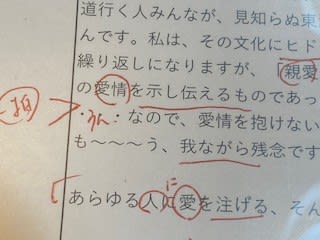 道行く人みんなが、見知らぬ東
んです。私は、その文化にヒド
繰り返しになりますが、「親愛
の愛情を示し伝えるものであっ
なので、愛情を抱けない
も〜〜〜う、我ながら残念です
に
あらゆる人に愛を注げる、そん